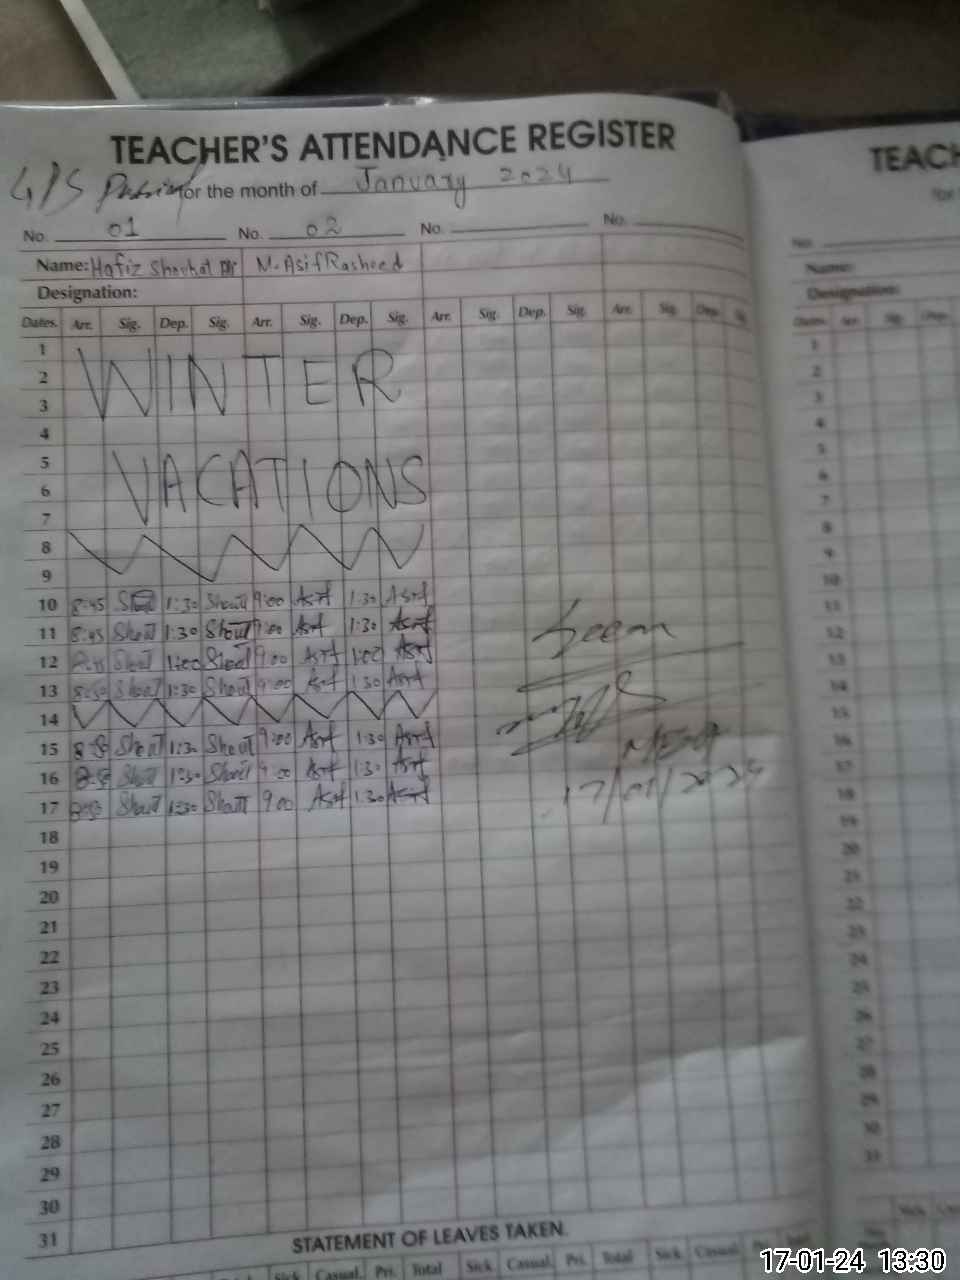 TEACHER'S ATTENDANCE REGISTER
G/S for the month of January 2024
No. 01 No. 02 No. No.
Name: Hafiz Shoukat M. Asif Rasheed
Designation:
Dates. Arr. Sig. Dep. Sig. Arr. Sig. Dep. Sig. Arr. Sig. Dep. Sig. Arr. Sig. Dep. Sig.
1
2 WINTER
3
4
5
6 VACATIONS
7
8
9
10 8:45 1:30 9:00 Asif 1:30 Asif
11 8:45 1:30 9:00 Asif 1:30 Asif
12 8:45 1:00 9:00 Asif 1:00 Asif
13 8:50 1:30 9:00 Asif 1:30 Asif
14
15 1:30 9:00 Asif 1:30 Asif
16 1:30 9:00 Asif 1:30 Asif
17 1:30 9:00 Asif 1:30 Asif
Seen
17/01/2024
18
19
20
21
22
23
24
25
26
27
28
29
30
31
STATEMENT OF LEAVES TAKEN.
Sick Casual. Pri. Total Sick Casual. Pri. Total Sick Casual.
TEACH
No.
Name:
Designation:
Dates. Arr. Sig. Dep.
1
2
3
4
5
6
7
8
9
10
11
12
13
14
15
16
17
18
19
20
21
22
23
24
25
26
27
28
29
30
31
17-01-24 13:30